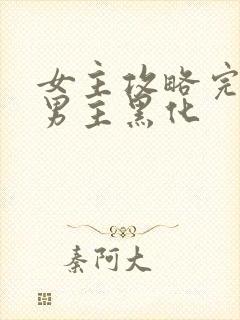 女主攻略完
男主黑化
秦阿大